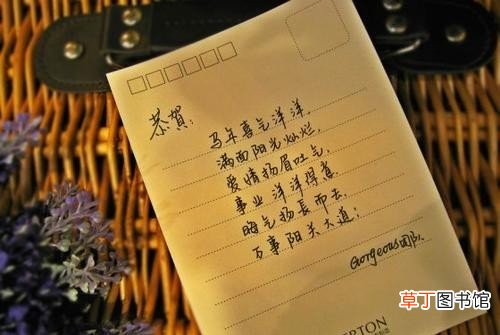 恭贺:
马年喜气洋洋,
满面阳光灿烂,
爱情扬眉吐气,
事业洋洋得意,
晦气扬長而去,
万事阳关大道!
Gorgeous团队
草丁图书馆